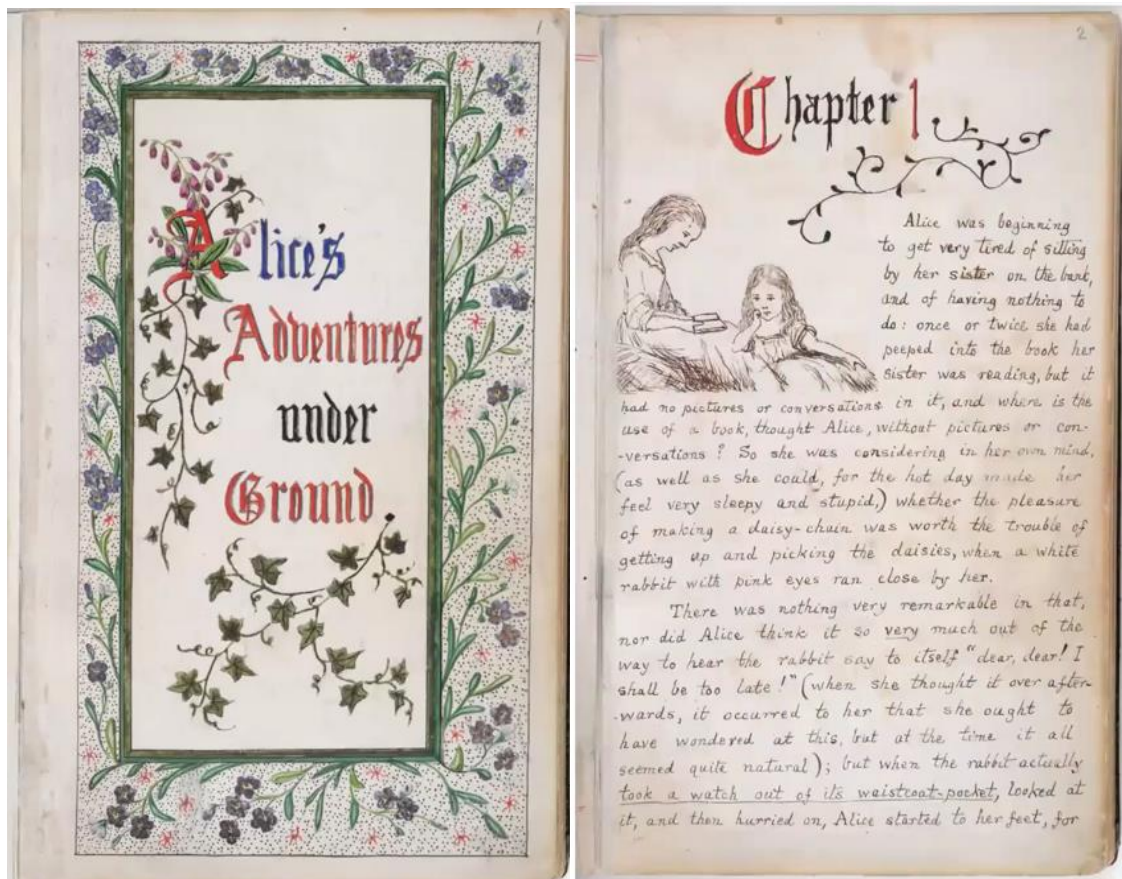 1
Alice's
Adventures
under
Ground
2
Chapter 1
Alice was beginning
to get very tired of sitting
by her sister on the bank,
and of having nothing to
do: once or twice she had
peeped into the book her
sister was reading, but it
had no pictures or conversations in it, and where is the
use of a book, thought Alice, without pictures or con-
-versations? So she was considering in her own mind,
(as well as she could, for the hot day made her
feel very sleepy and stupid,) whether the pleasure
of making a daisy-chain was worth the trouble of
getting up and picking the daisies, when a white
rabbit with pink eyes ran close by her.
There was nothing very remarkable in that,
nor did Alice think it so very much out of the
way to hear the rabbit say to itself "dear, dear! I
shall be too late!" (when she thought it over after-
-wards, it occurred to her that she ought to
have wondered at this, but at the time it all
seemed quite natural); but when the rabbit actually
took a watch out of its waistcoat-pocket, looked at
it, and then hurried on, Alice started to her feet, for